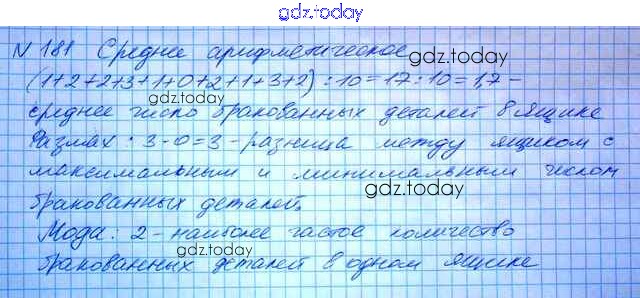 gdz.today
N 181 Среднее арифметическое
gdz.today
(1+2+2+3+1+0+2+1+3+2) : 10 = 17 : 10 = 1,7 -
gdz.today
среднее число бракованных деталей в ящике
Размах : 3-0=3 - разница между ящиком с
gdz.today
максимальным и минимальным числом
gdz.today
бракованных деталей.
Мода: 2 - наиболее частое количество
gdz.today
бракованных деталей в одном ящике